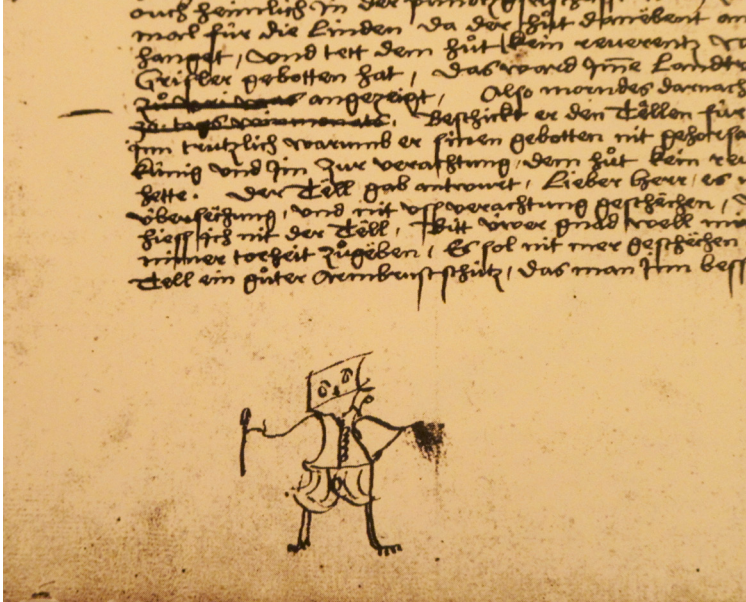 ouch heimlich in der
mal für die Linden da der hůt danebent an
hanget, und tett dem hůt kein reverentz
Grisler gebotten hat, das ward Ime Landt
angezeigt, Also morndes darnach
Beschickt er den Tëllen für
Inn trutzlich warumb er sinen gebotten nit gehorsa
künig und Jm zur verachtung, dem hůt kein rev
hette. Der Tëll gab antwurt, Lieber herr, es
übersëchung, und nit uss verachtung geschëchen,
hiess ich nit der Tëll, Bitt üwer gnad well
miner torheit zůgëben, Es sol nit mer geschëchen
Tëll ein gůter Armbrustschütz, das man Inn bess